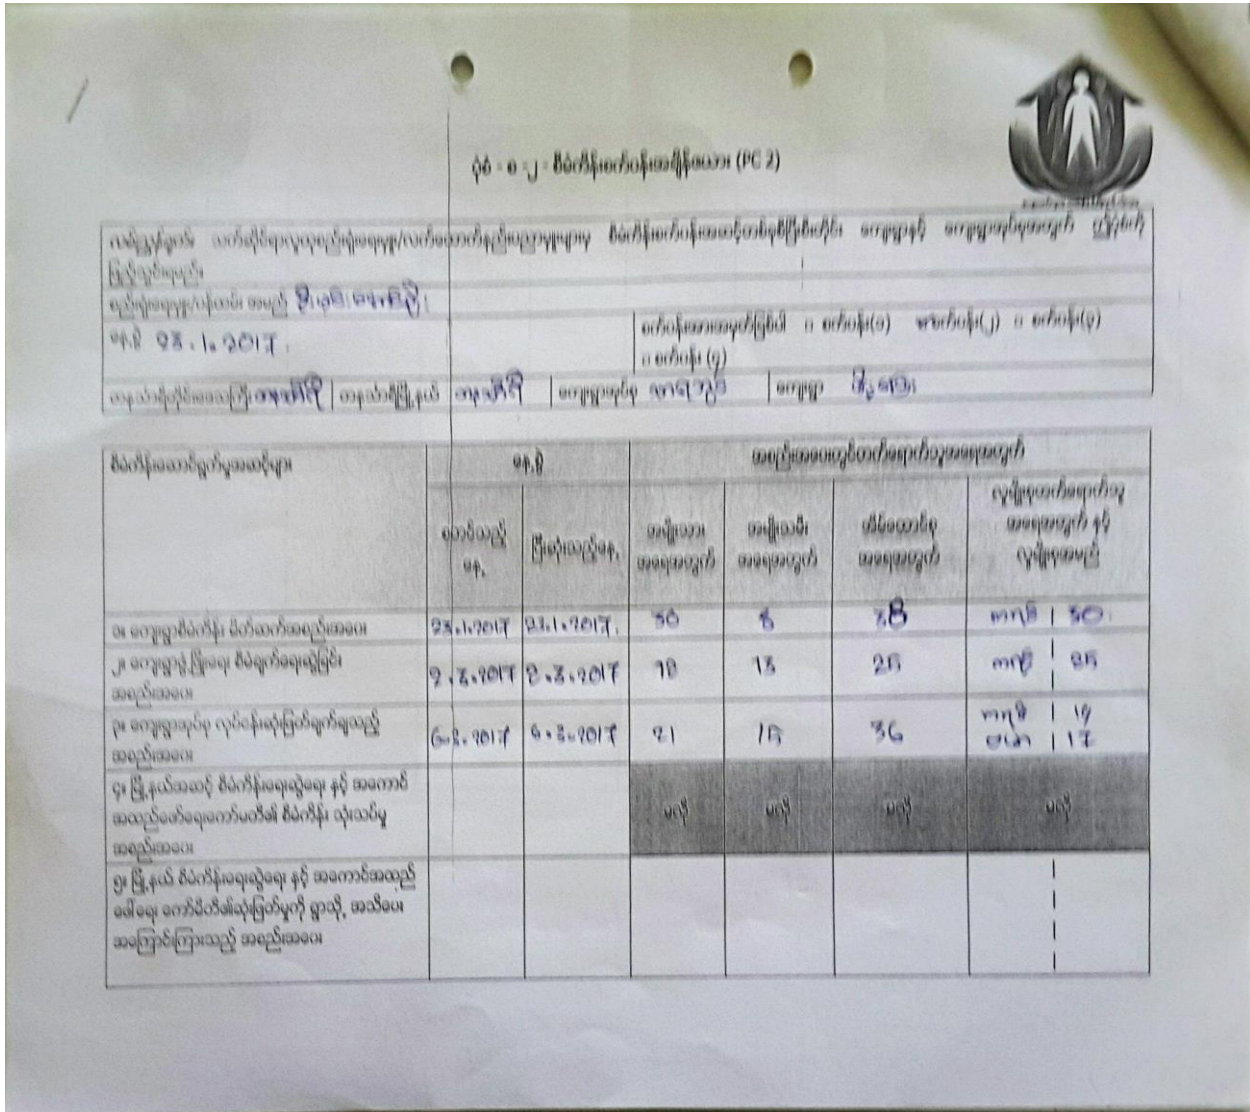 ပုံစံ - စ - ၂ - စီမံကိန်းစက်ဝန်းအချိန်ဇယား (PC 2)
လမ်းညွှန်ချက်။ သက်ဆိုင်ရာလူထုစည်းရုံးရေးမှူး/လက်ထောက်နည်းပညာမှူးများမှ စီမံကိန်းစက်ဝန်းအဆင့်တစ်ခုစီပြီးစီးတိုင်း ကျေးရွာနှင့် ကျေးရွာအုပ်စုအတွက် ဤပုံစံကို
ဖြည့်သွင်းရမည်။
စည်းရုံးရေးမှူး/ဝန်ထမ်း အမည်
နေ့စွဲ 23.1.2017.
စက်ဝန်းအားအမှတ်ခြစ်ပါ □ စက်ဝန်း(၁) စက်ဝန်း(၂) □ စက်ဝန်း(၃)
□ စက်ဝန်း (၄)
တနင်္သာရီတိုင်းဒေသကြီး တနင်္သာရီ တနင်္သာရီမြို့နယ် တနင်္သာရီ ကျေးရွာအုပ်စု ကျေးရွာ
စီမံကိန်းဆောင်ရွက်မှုအဆင့်များ နေ့စွဲ အစည်းအဝေးတွင်တက်ရောက်သူအရေအတွက်
စတင်သည့်နေ့ ပြီးဆုံးသည့်နေ့ အမျိုးသားအရေအတွက် အမျိုးသမီးအရေအတွက် အိမ်ထောင်စုအရေအတွက် လူမျိုးစုတက်ရောက်သူအရေအတွက် နှင့် လူမျိုးစုအမည်
၁။ ကျေးရွာစီမံကိန်း မိတ်ဆက်အစည်းအဝေး 23.1.2017 23.1.2017. 30 8 38 ကရင် 30.
၂။ ကျေးရွာဖွံ့ဖြိုးရေး စီမံချက်ရေးဆွဲခြင်း
အစည်းအဝေး 2.3.2017 2.3.2017 13 25 ကရင် 25
၃။ ကျေးရွာအုပ်စု လုပ်ငန်းဆုံးဖြတ်ချက်ချသည့်
အစည်းအဝေး 6.3.2017 6.3.2017 21 15 36 ကရင် 19
ဗမာ 17
၄။ မြို့နယ်အဆင့် စီမံကိန်းရေးဆွဲရေး နှင့် အကောင်
အထည်ဖော်ရေးကော်မတီ၏ စီမံကိန်း သုံးသပ်မှု
အစည်းအဝေး မလို မလို မလို မလို
၅။ မြို့နယ် စီမံကိန်းရေးဆွဲရေး နှင့် အကောင်အထည်
ဖေါ်ရေး ကော်မီတီ၏ဆုံးဖြတ်မှုကို ရွာသို့ အသိပေး
အကြောင်းကြားသည့် အစည်းအဝေး